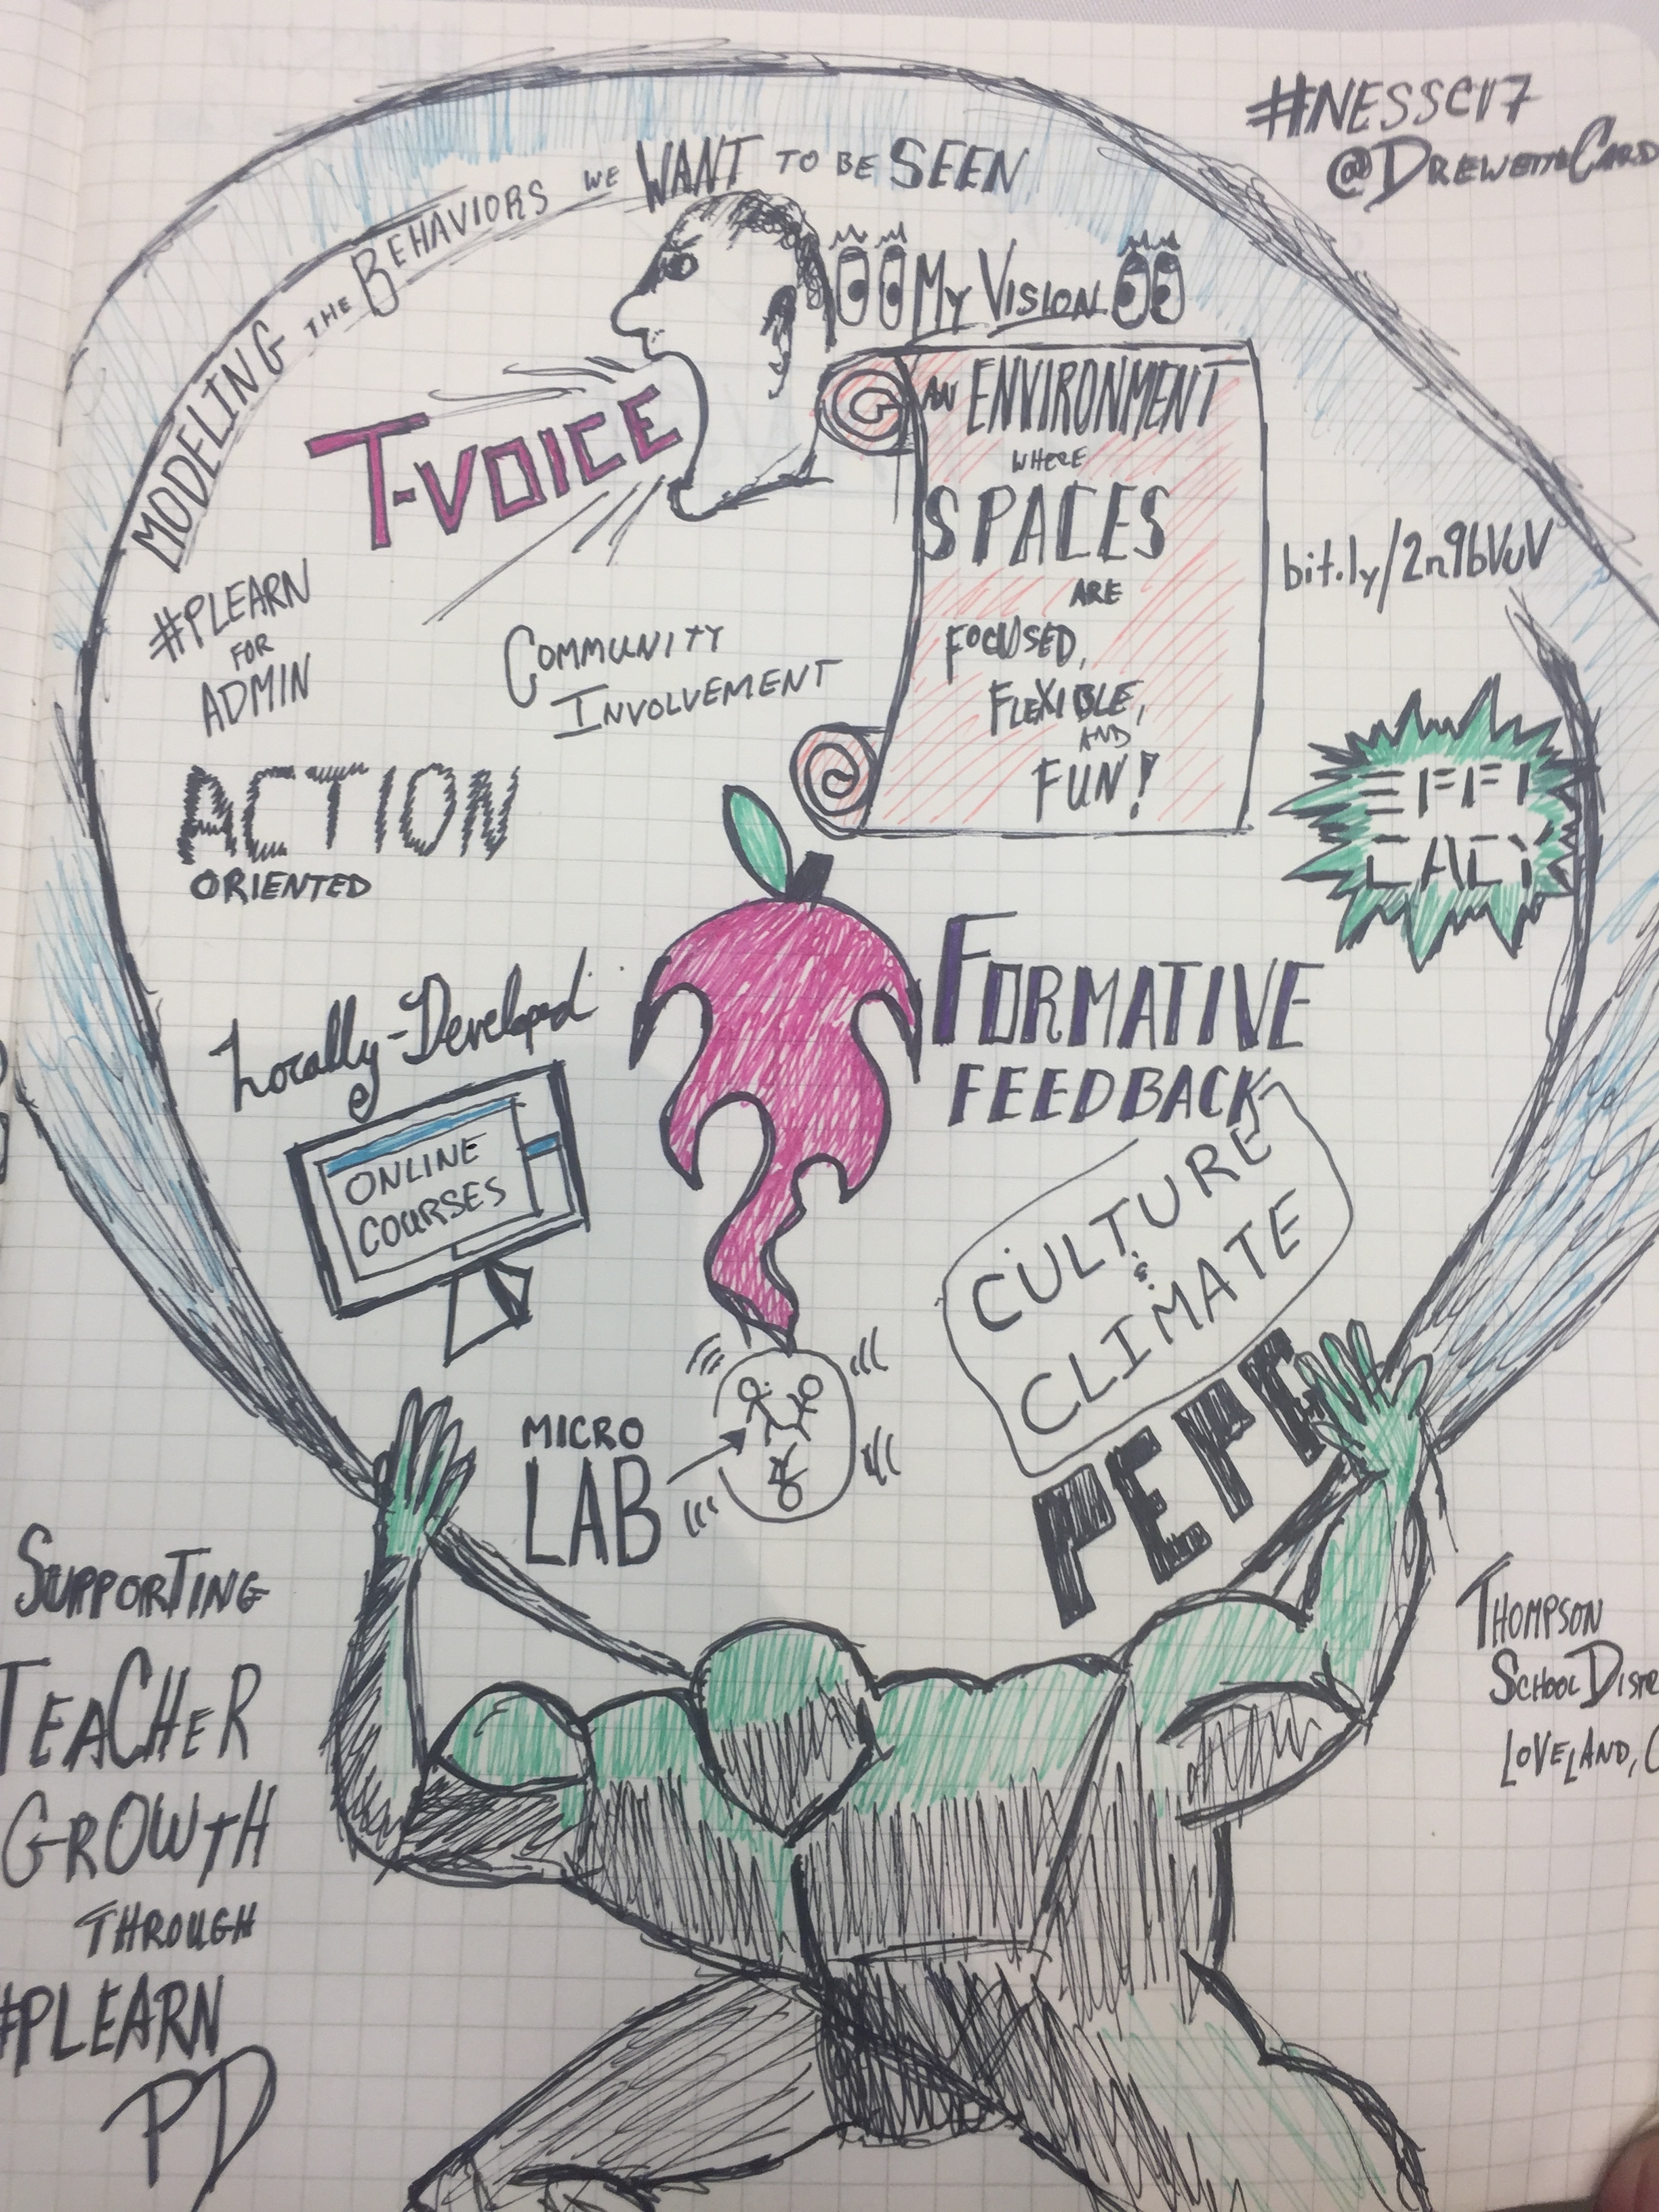 #NESSC17
@DREWETTECARD
MODELING THE BEHAVIORS WE WANT TO BE SEEN
MY VISION
T-VOICE
AN ENVIRONMENT
WHERE
SPACES
ARE
FOCUSED,
FLEXIBLE,
AND
FUN!
bit.ly/2n9bVuV
#PLEARN
FOR
ADMIN
COMMUNITY
INVOLVEMENT
ACTION
ORIENTED
EFFI
CACY
Locally-Developed
ONLINE
COURSES
FORMATIVE
FEEDBACK
CULTURE
&
CLIMATE
MICRO
LAB
SUPPORTING
TEACHER
GROWTH
THROUGH
#PLEARN
PD
THOMPSON
SCHOOL
LOVELAND,